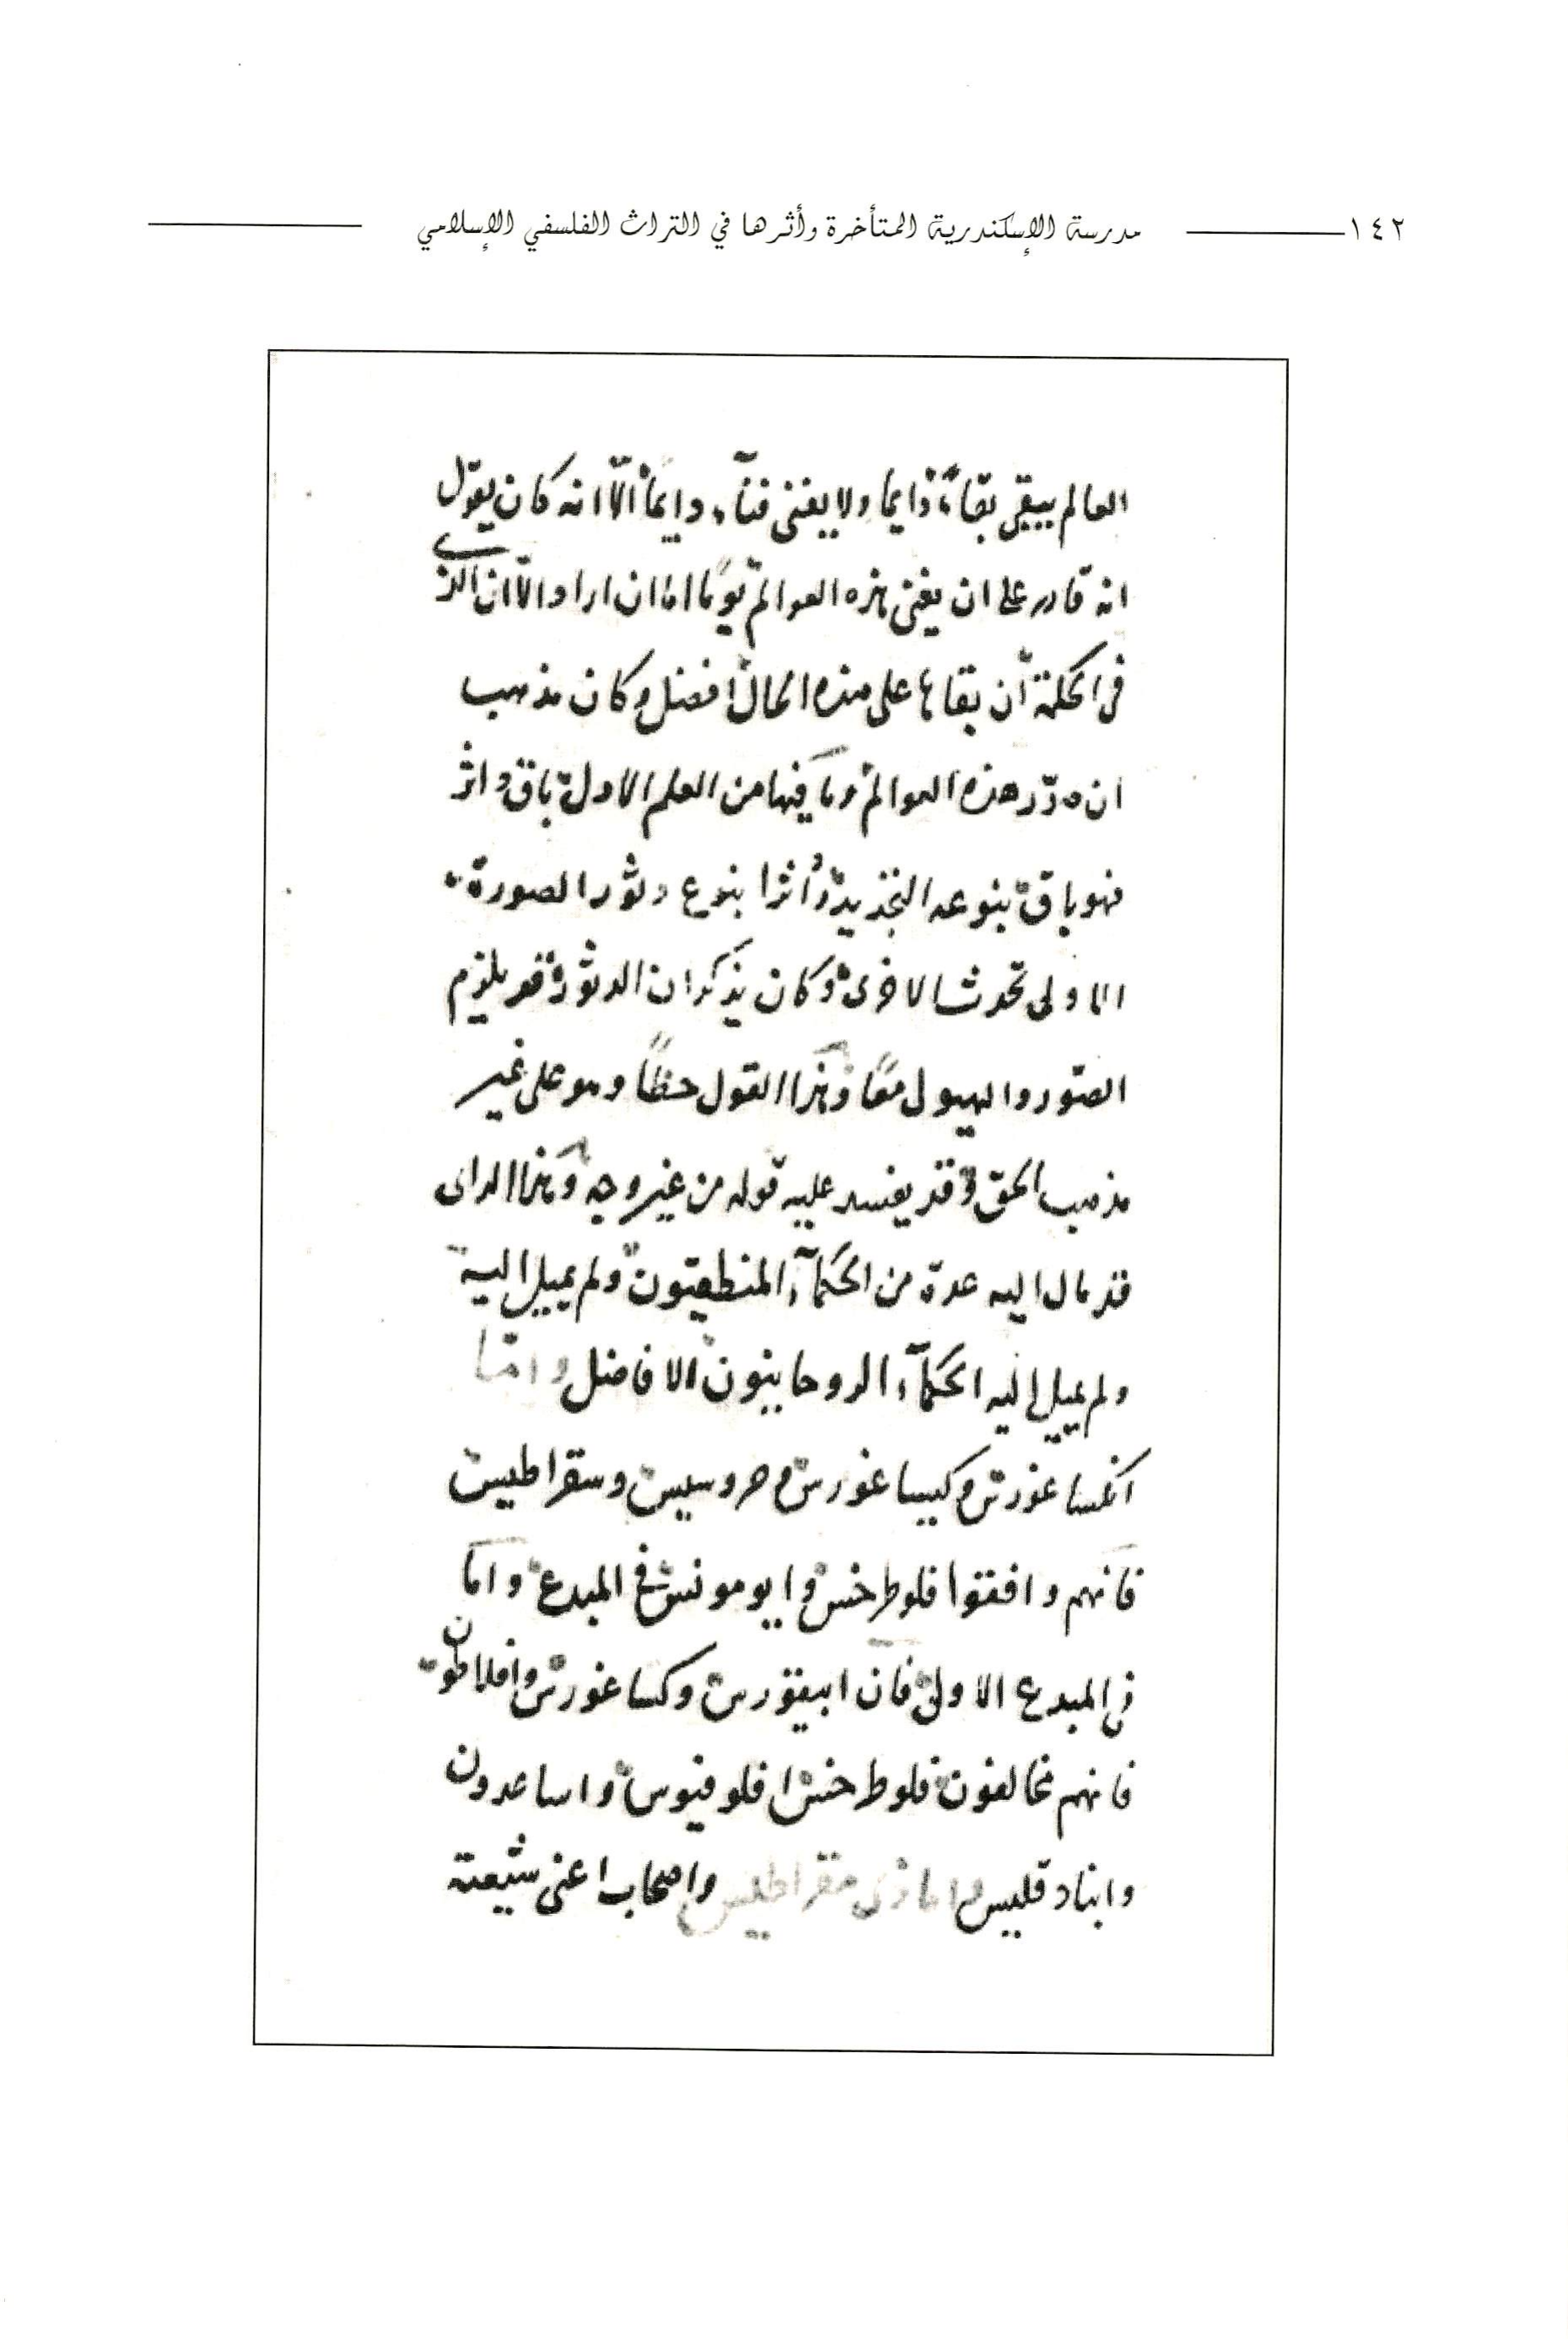 ١٤٢ مدرسة الإسكندرية المتأخرة وأثرها في التراث الفلسفي الإسلامي
العالم يبقى بقاءً دايما ولا يفنى فناء دايماً الّا انه كان يقول
انه قادر على ان يفنى هذه العوالم يوما اما ان اراد الّا ان الذى
فى الحكمة ان بقاها على هذه الحال افضل وكان مذهب
ان هذه العوالم وما فيها من العلم الاول باق داثر
فهو باق بنوعه التجديد داثرا بنوع دثور الصورة
الاولى تحدث الاخرى وكان يذكر ان الدثور قد يلزم
الصّور والهيول معًا وهذا القول خطاً وهو على غير
مذهب الحق وقد يفسد عليه قوله من غير وجه وهذا الراى
قد مال اليه عدة من الحكمآء المنطقيون ولم يميل اليه
ولم يميل اليه الحكمآء الروحانيون الافاضل وامّا
انكساغورس وكيساغورس وحروسيس وسقراطيس
فانهم وافقوا فلوطرخس وايومونس فى المبدع واما
فى المبدع الاول فان ابيقورس وكساغورس وافلاطون
فانهم مخالفون فلوطرخس افلوفنيوس واساعدون
وابنادقليس واما ذى مقراطيس واصحابه اعنى شيعته